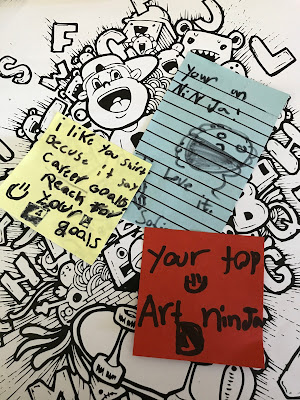 I like You Shirt
Becuse it say
Career Goals
Reach for
Your
goals
Your an
NiNJa!
Love it.
Your top
Art ninja